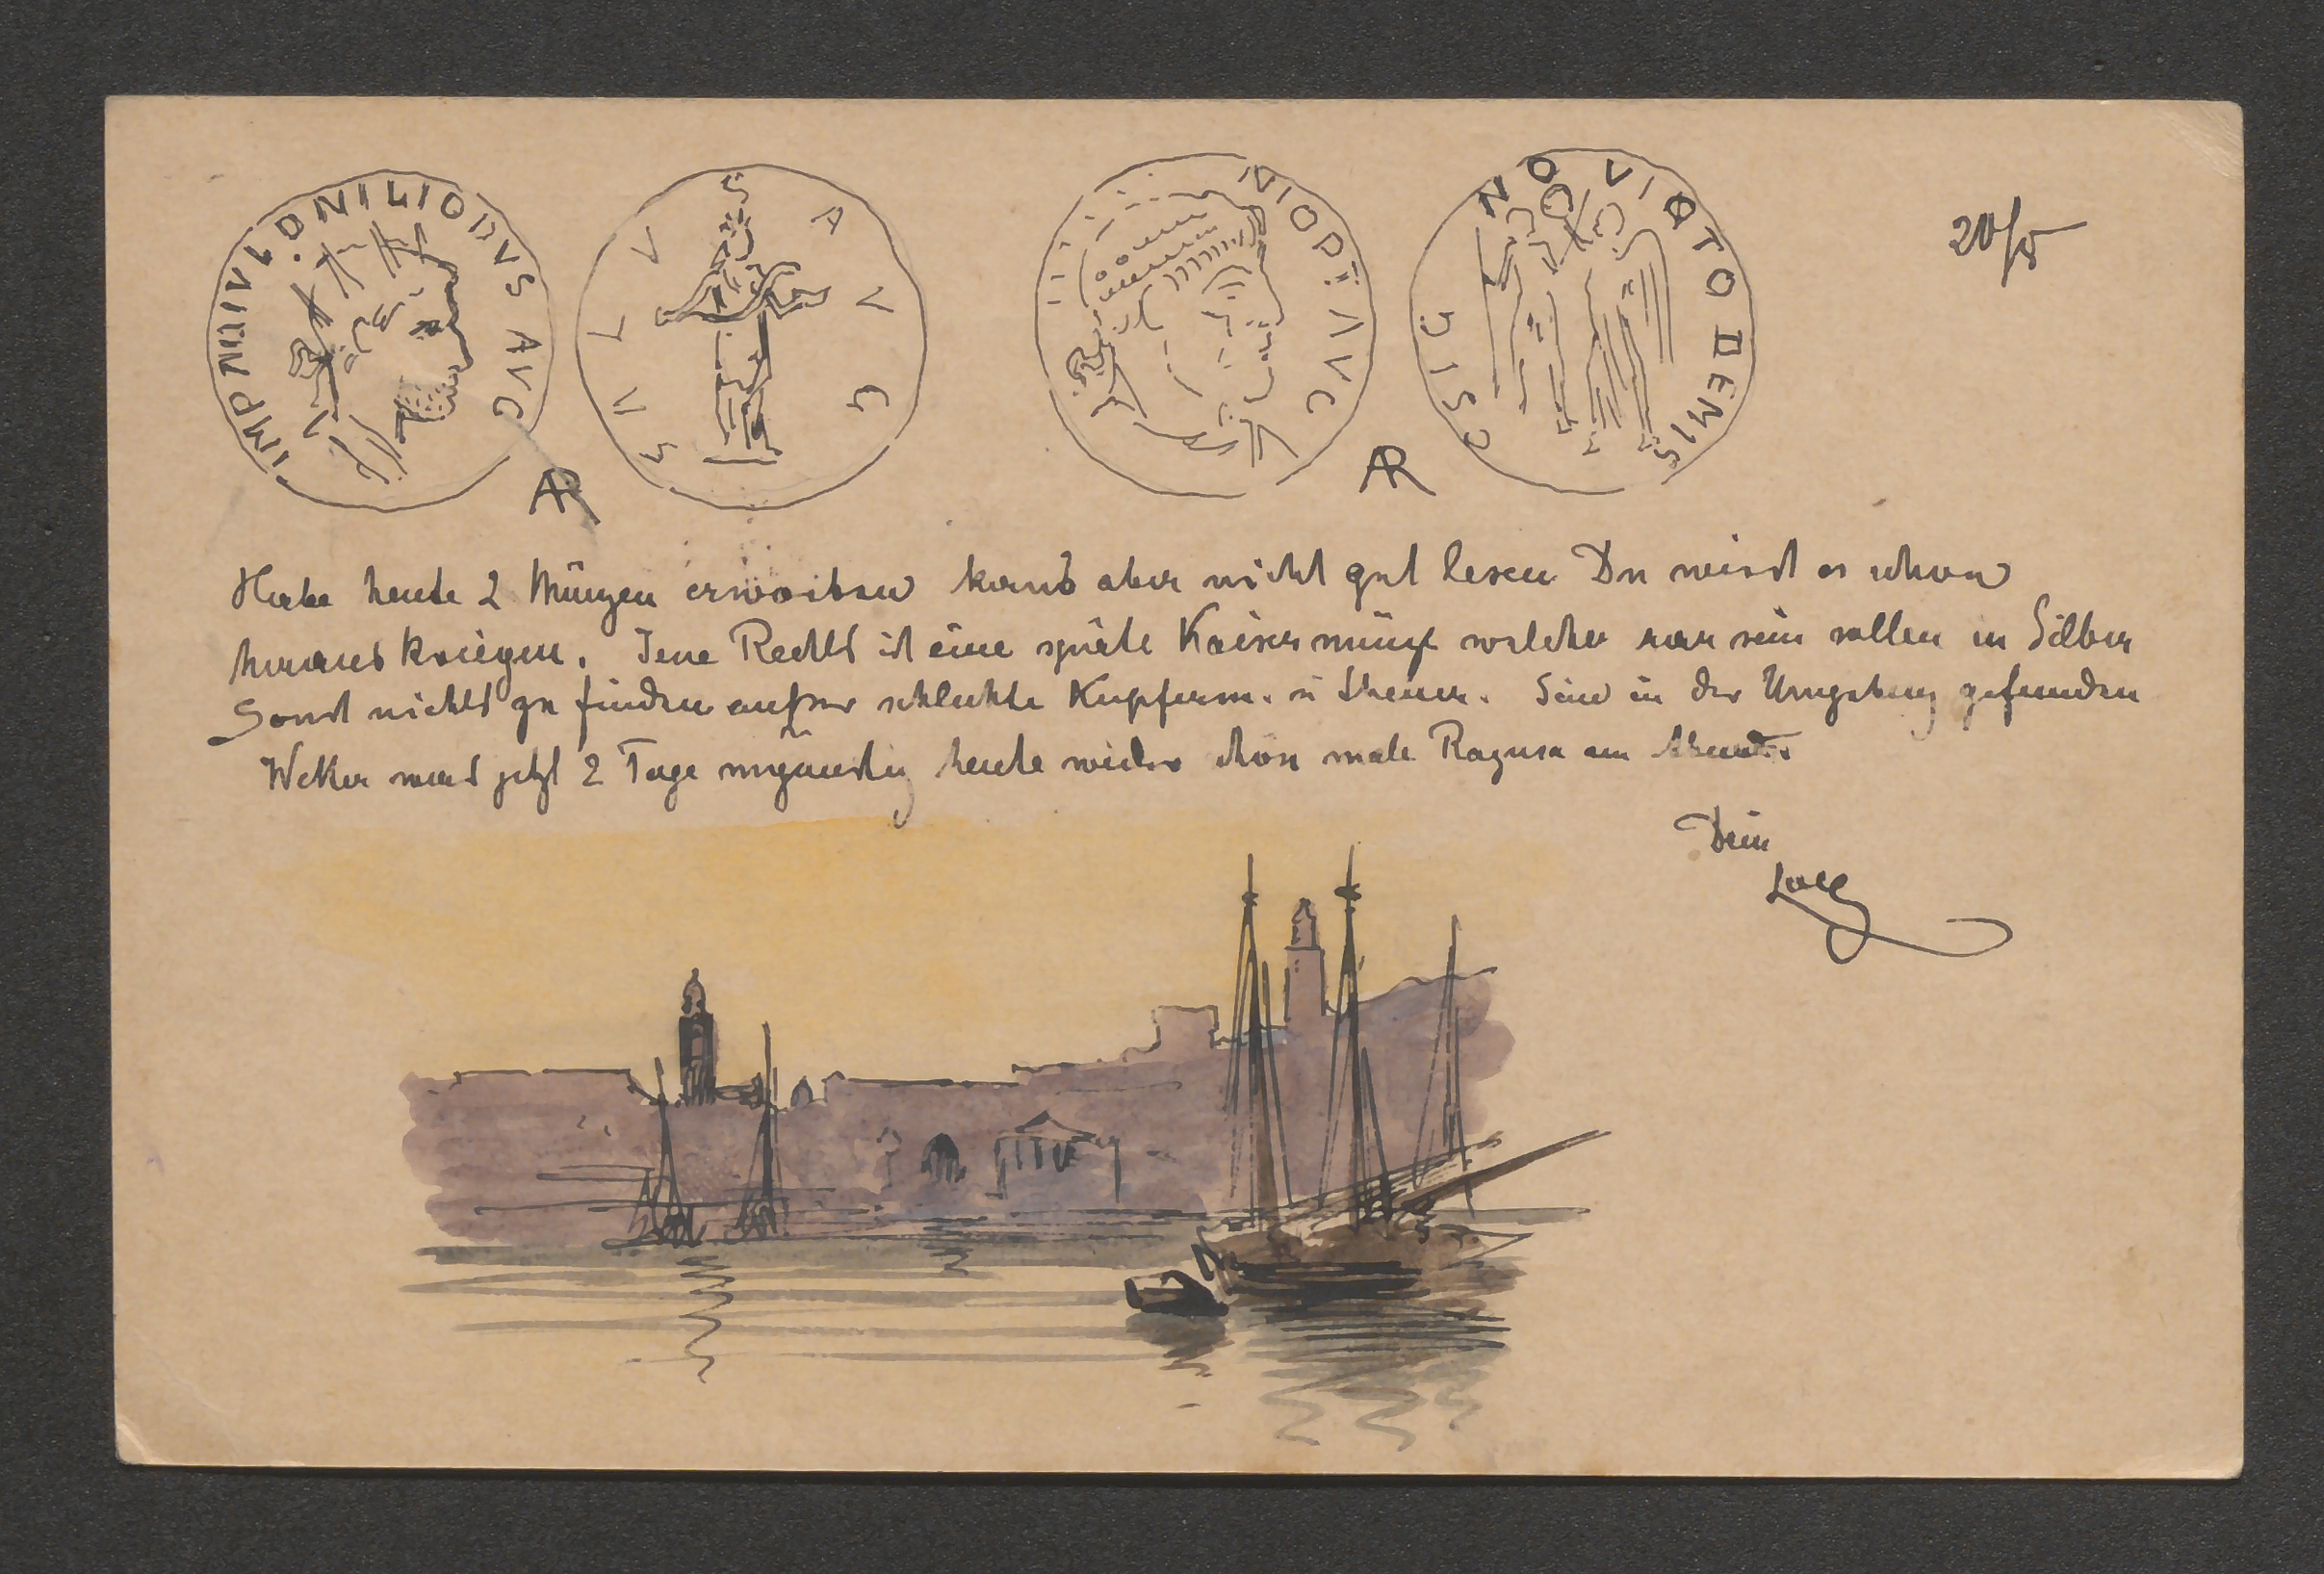 20/5
AVG
SALVS
AVG
AR
AR
Habe heute 2 Münzen erworben kann's aber nicht gut lesen Du wirst es schon
herauskriegen. Jene Rechts ist eine späte Kaisermünze welche rar sein sollen in Silber
Sonst nichts zu finden außer schlechte Kupferm. u theuer. Sind in der Umgebung gefunden
Wetter war jetzt 2 Tage ungünstig heute wieder schön male Ragusa am Abend.
Dein